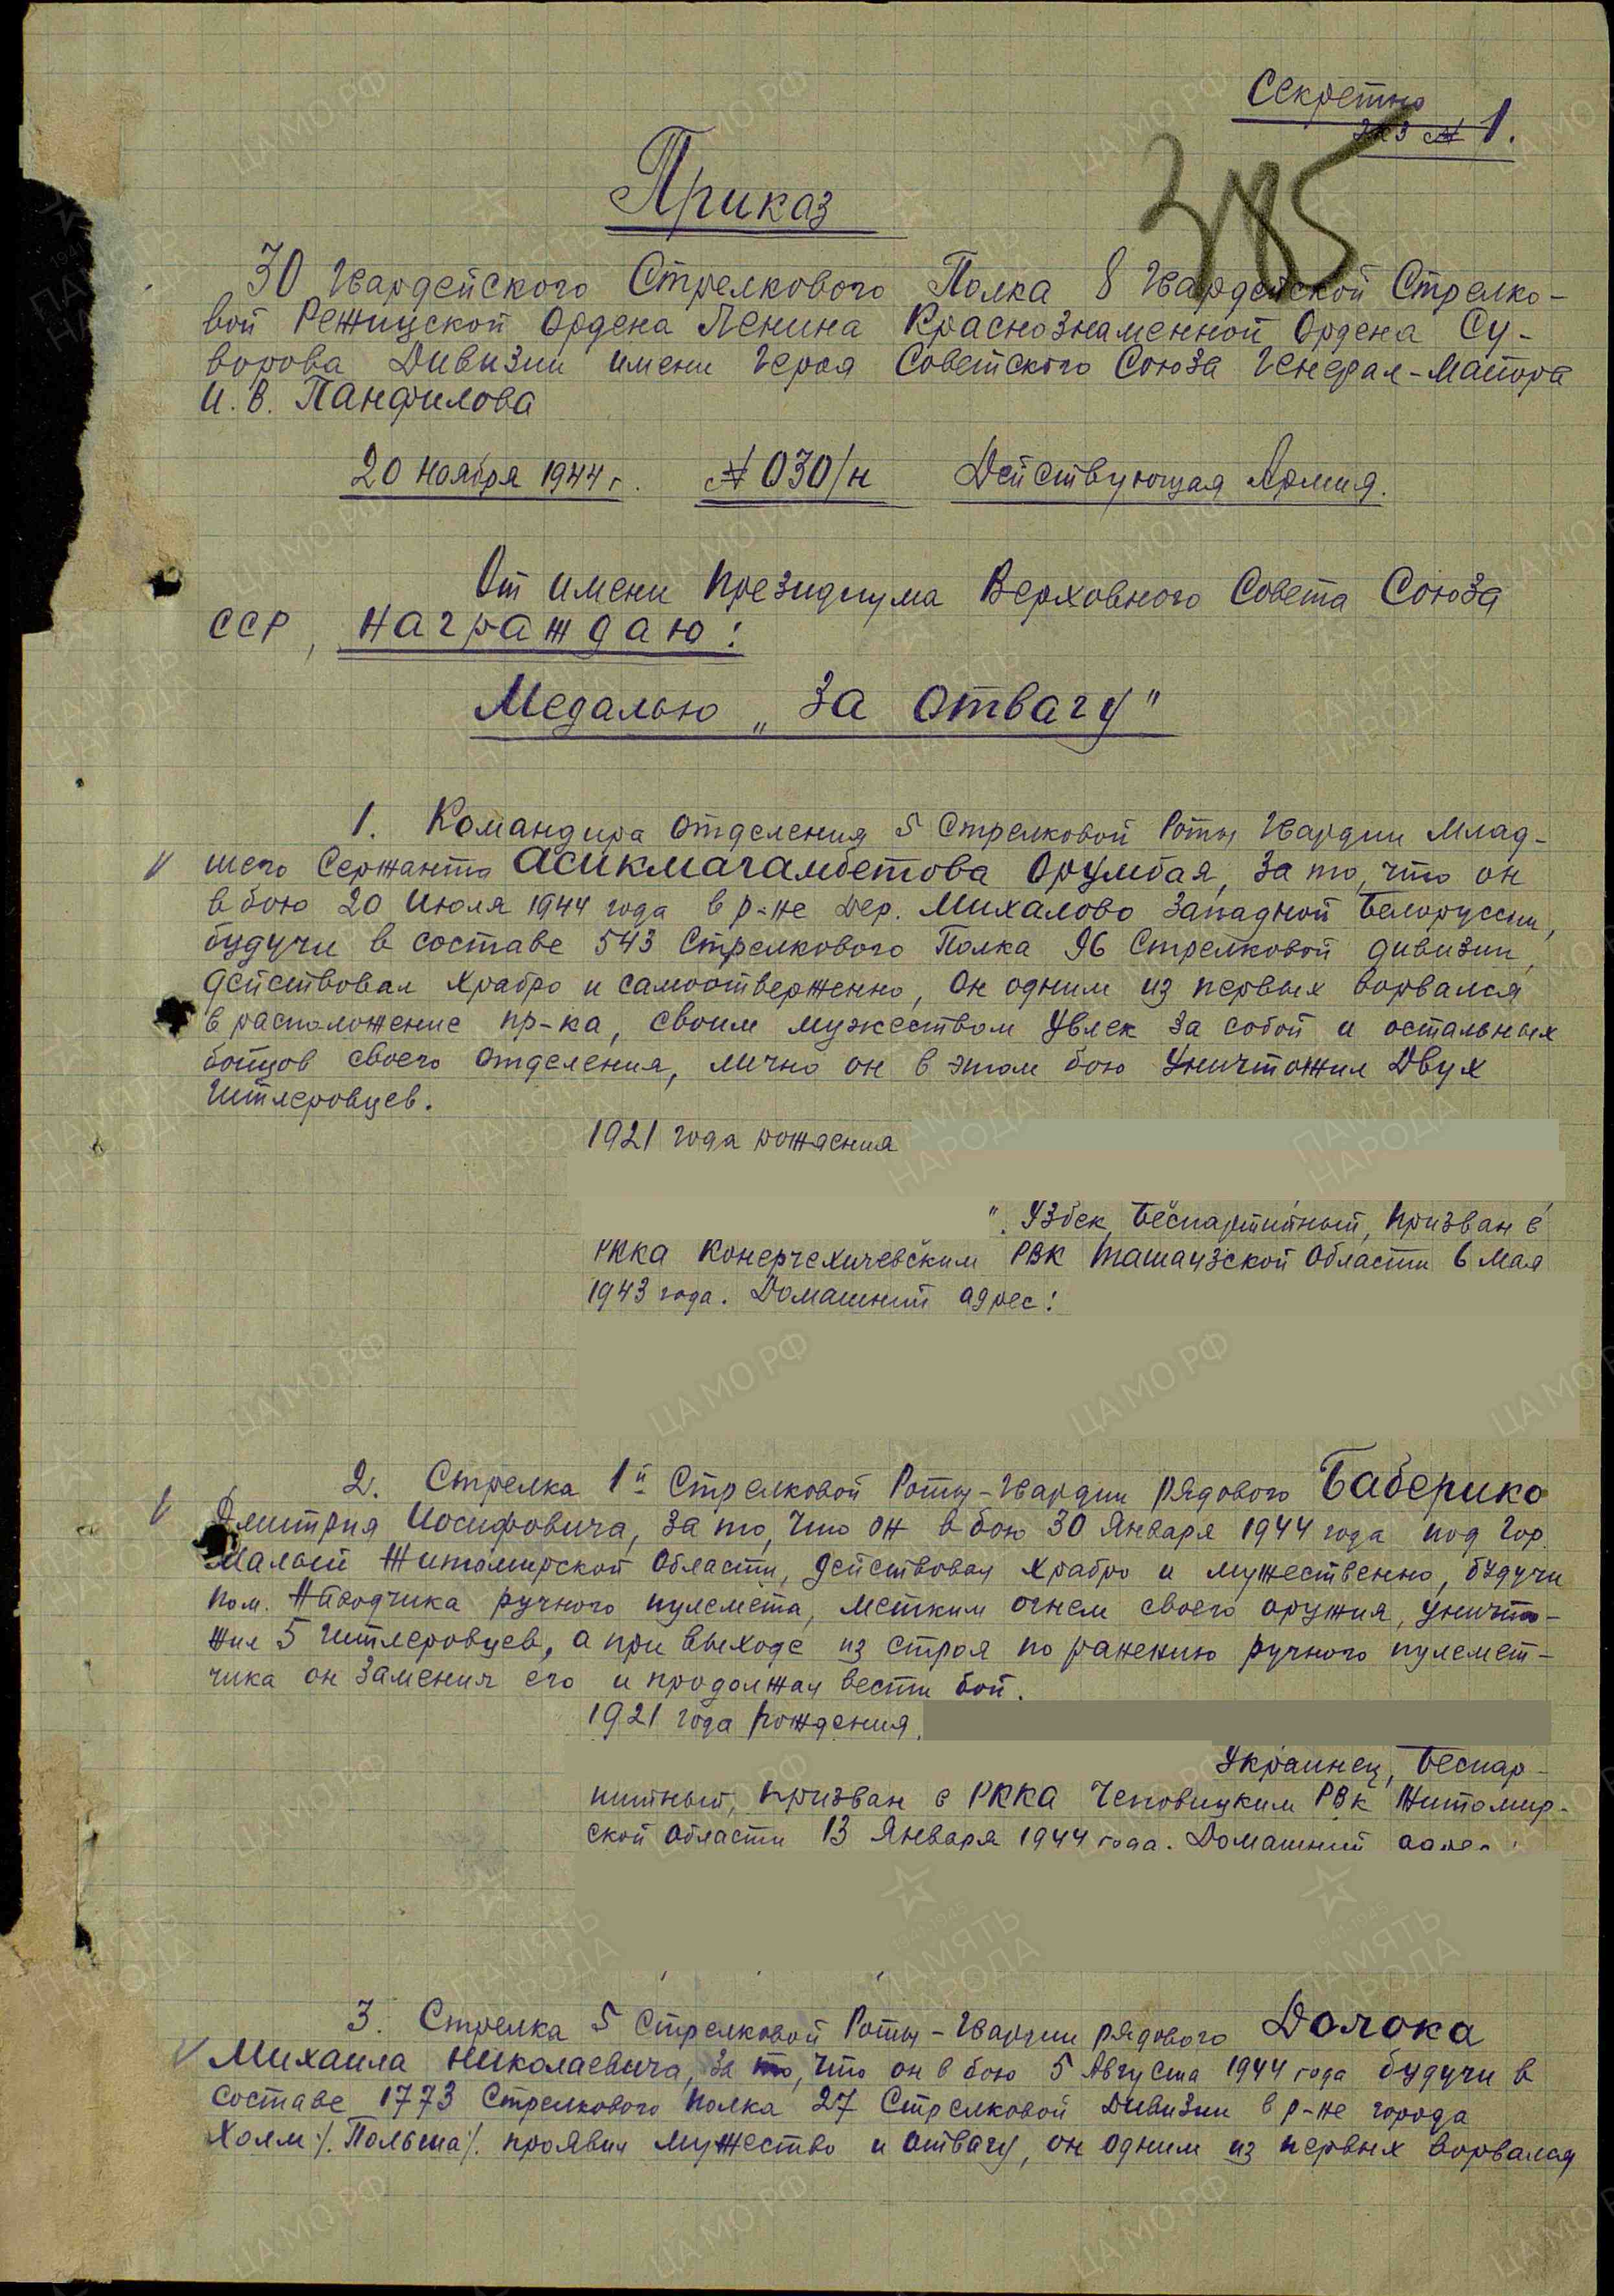 Секретно
экз № 1.
345
Приказ
30 Гвардейского Стрелкового Полка 8 Гвардейской Стрелко-
вой Режицской Ордена Ленина Краснознаменной Ордена Су-
ворова Дивизии имени Героя Советского Союза Генерал-Майора
И.В. Панфилова
20 Ноября 1944 г. № 030/н Действующая Армия.
От имени Президиума Верховного Совета Союза
ССР, награждаю:
Медалью „За отвагу"
1. Командира отделения 5 Стрелковой Роты Гвардии Млад-
шего Сержанта Асикмагамбетова Орумбая, за то, что он
в бою 20 Июля 1944 года в р-не дер. Михалово Западной Белоруссии,
будучи в составе 543 Стрелкового Полка 96 Стрелковой дивизии,
действовал храбро и самоотверженно, он одним из первых ворвался
в расположение пр-ка, своим мужеством увлек за собой и остальных
бойцов своего отделения, лично он в этом бою уничтожил двух
Гитлеровцев.
1921 года рождения
". Узбек, Беспартийный, призван в
РККА РВК Ташаузской Области в Мая
1943 года. Домашний адрес:
2. Стрелка 1й Стрелковой Роты-Гвардии рядового Баберико
Дмитрия Иосифовича, за то, что он в бою 30 Января 1944 года под Гор.
Малый Житомирской Области, действовал храбро и мужественно, будучи
пом. наводчика ручного пулемета, метким огнем своего оружия, уничто-
жил 5 Гитлеровцев, а при выходе из строя по ранению ручного пулемет-
чика он заменил его и продолжал вести бой.
1921 года рождения,
Украинец, Беспар-
тийный, призван в РККА Чеповицким РВК Житомир-
ской Области 13 Января 1944 года. Домашний адрес:
3. Стрелка 5 Стрелковой Роты-Гвардии рядового Долока
Михаила Николаевича, за то, что он в бою 5 Августа 1944 года будучи в
составе 1773 Стрелкового полка 27 Стрелковой Дивизии в р-не города
Холм ./. Польша ./. проявил мужество и отвагу, он одним из первых ворвался